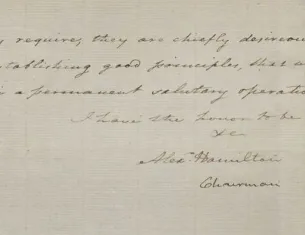 requires, they are chiefly desireous
establishing good principles, that
a permanent salutary operation
I have the honor to be
&c
Alex. Hamilton
Chairman